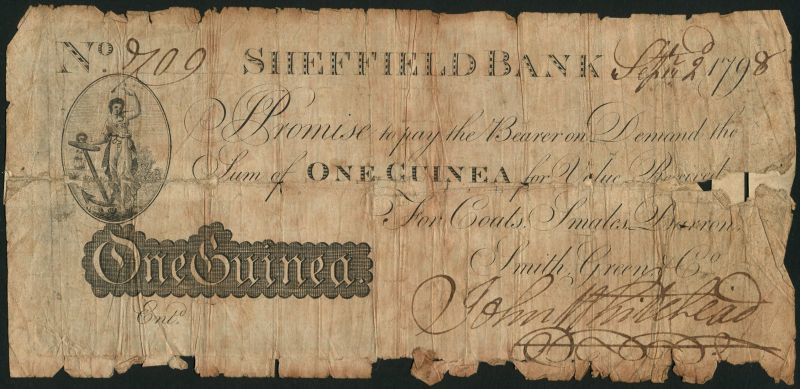 No. 2709 SHEFFIELD BANK Sept. 2d 1798
I Promise to pay the Bearer on Demand the
Sum of ONE GUINEA for Value Received
For Coats, Smales,
Smith, Green & Co
One Guinea.
Entd
John Whitehead